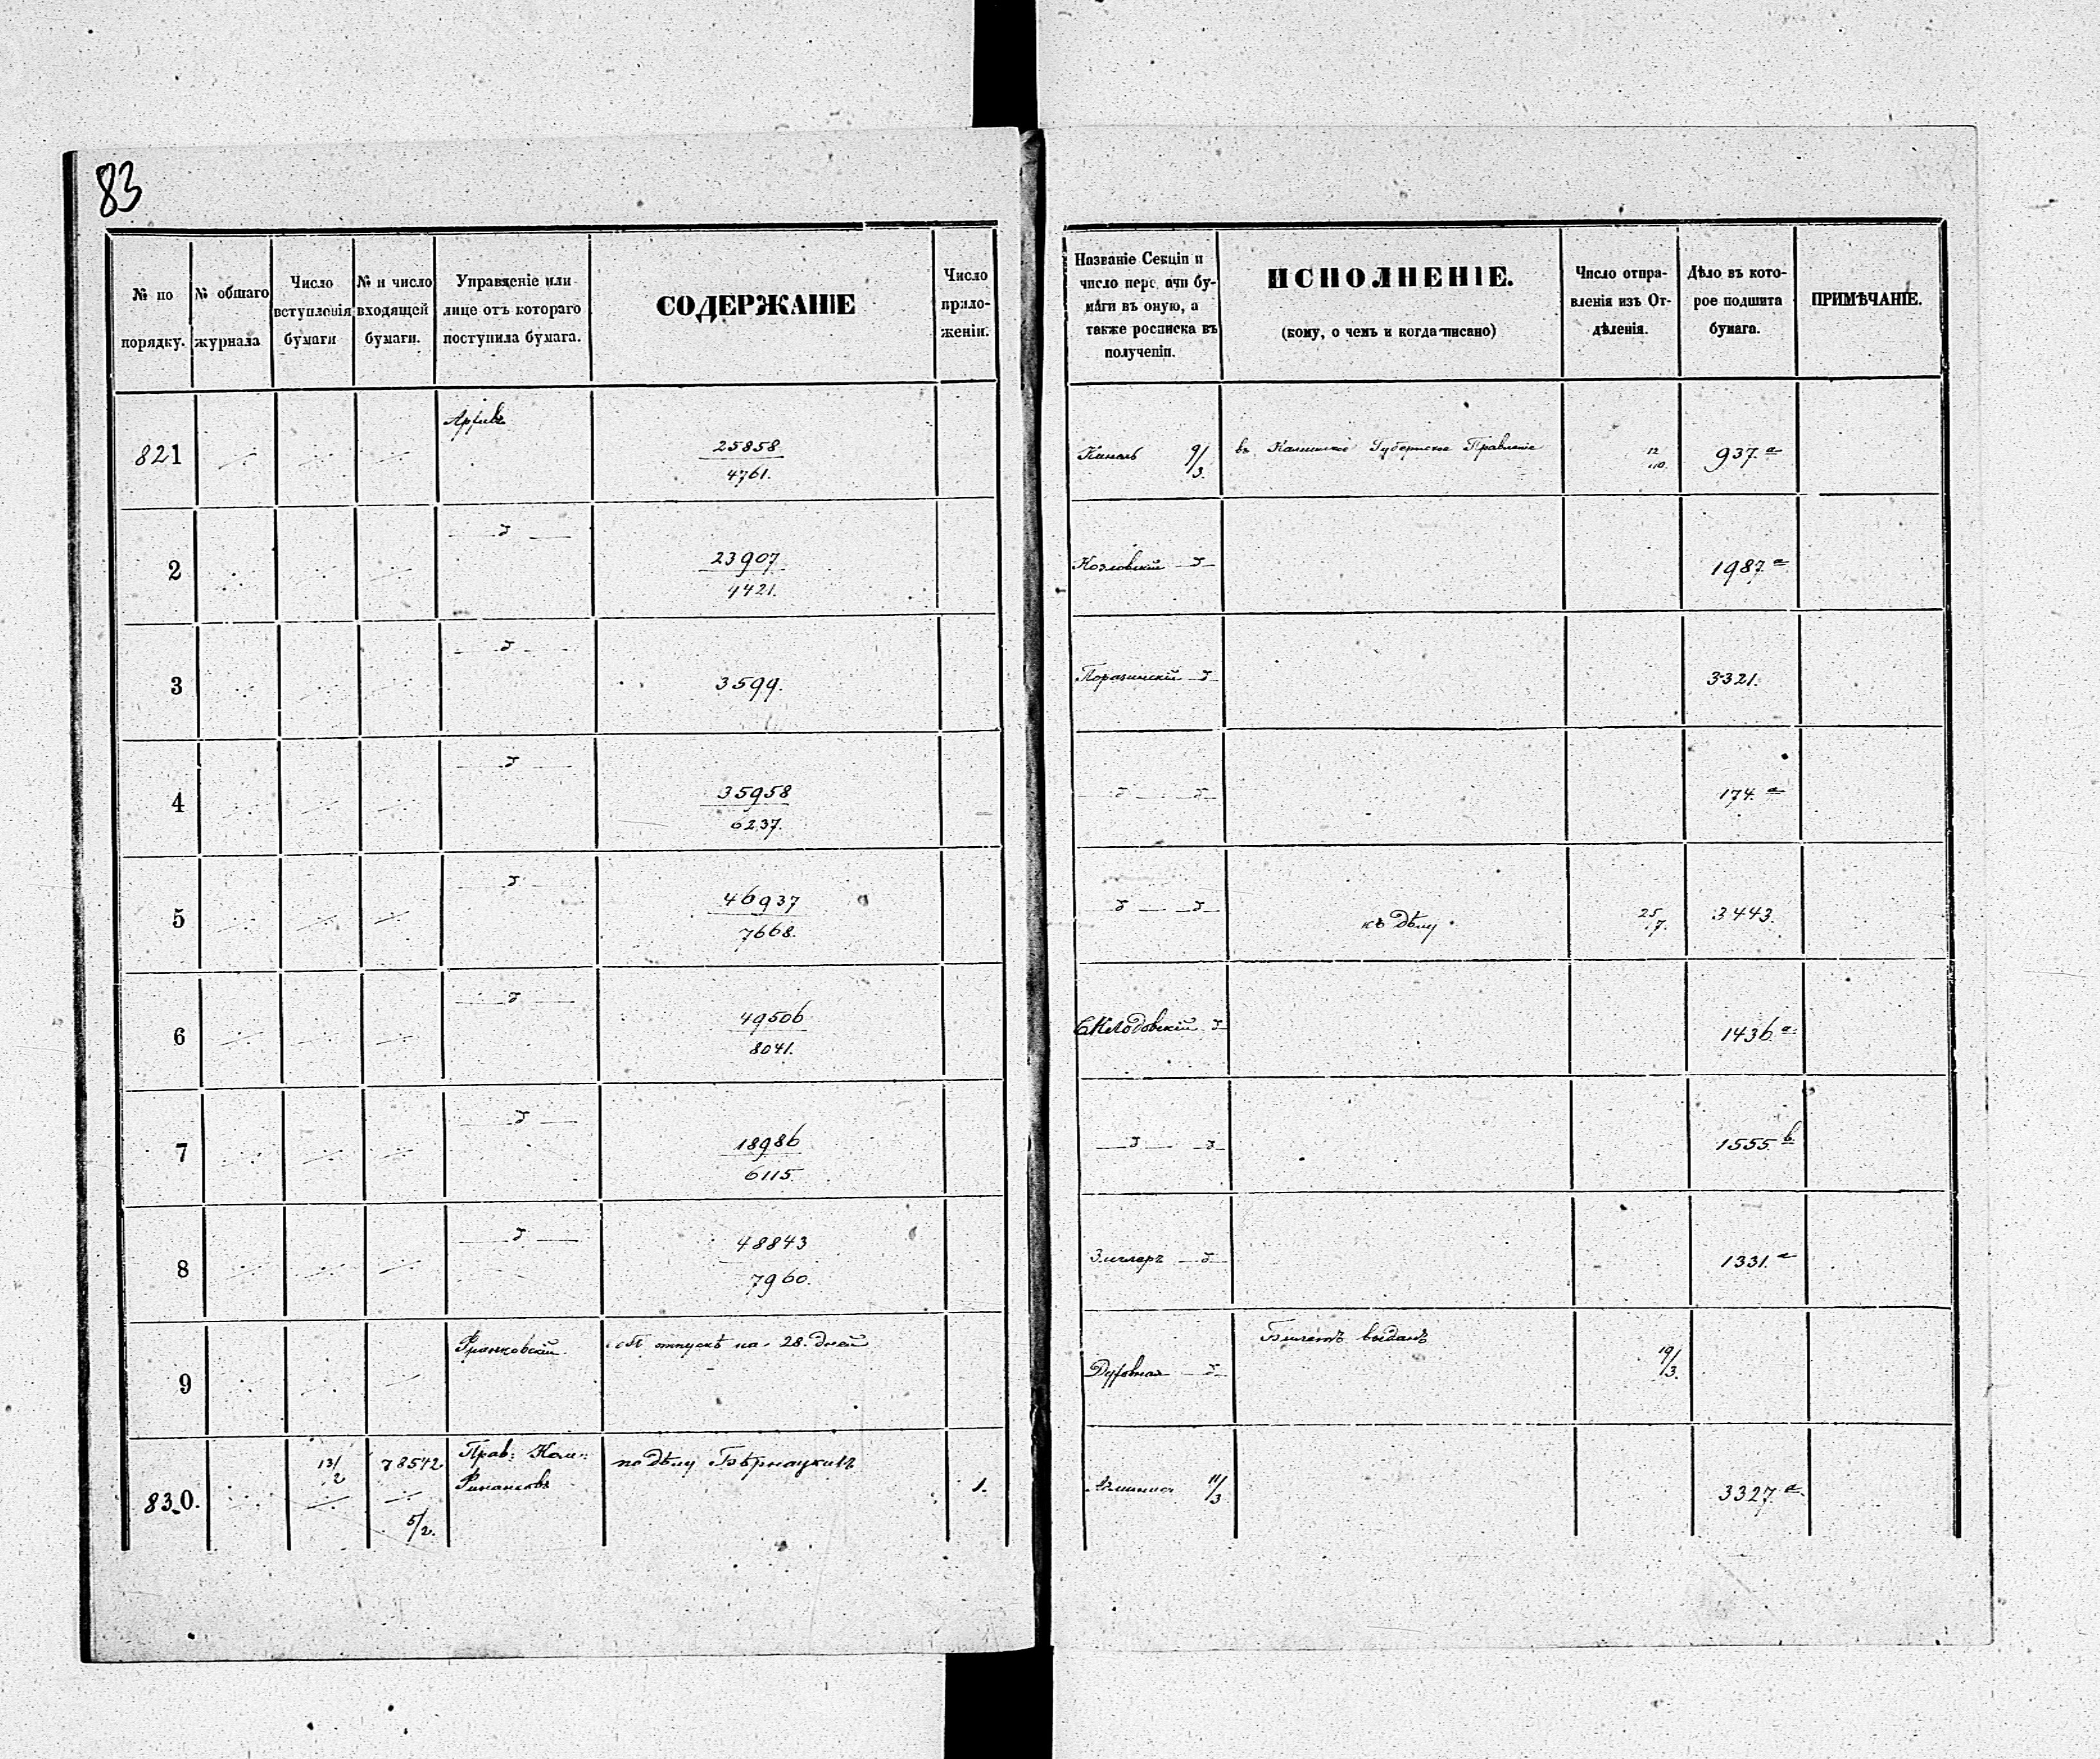 83
№ по порядку.
№ общаго журнала
Число вступленія бумаги
№ и число входящей бумаги.
Управленіе или лице отъ котораго поступила бумага.
СОДЕРЖАНІЕ
Число приложеній.
Названіе Секціи и число перед ачи бумаги въ оную, а также росписка въ полученіи.
ИСПОЛНЕНІЕ.
(кому, о чемъ и когда писано)
Число отправленія изъ Отдѣленія.
Дѣло въ которое подшита бумага.
ПРИМѢЧАНІЕ.
821 Архивъ 25858/4761. 9/3. въ Калишское Губернское Правленіе 12/10. 937.а
2 23907/4421. Козловскій 1987.а
3 3599. 3321.
4 35958/6237. 174.а
5 46937/7668. къ дѣлу 25/7. 3443.
6 49506/8041. 1436.а
7 18986/6115. 1555.b
8 48843/7960. 1331.а
9 Франковскій объ отпускѣ на 28. дней Духовная Билетъ выданъ 19/3.
830. 13/2 78542 5/2. Прав: Ком: Финансовъ по дѣлу 1. 11/3 3327.а